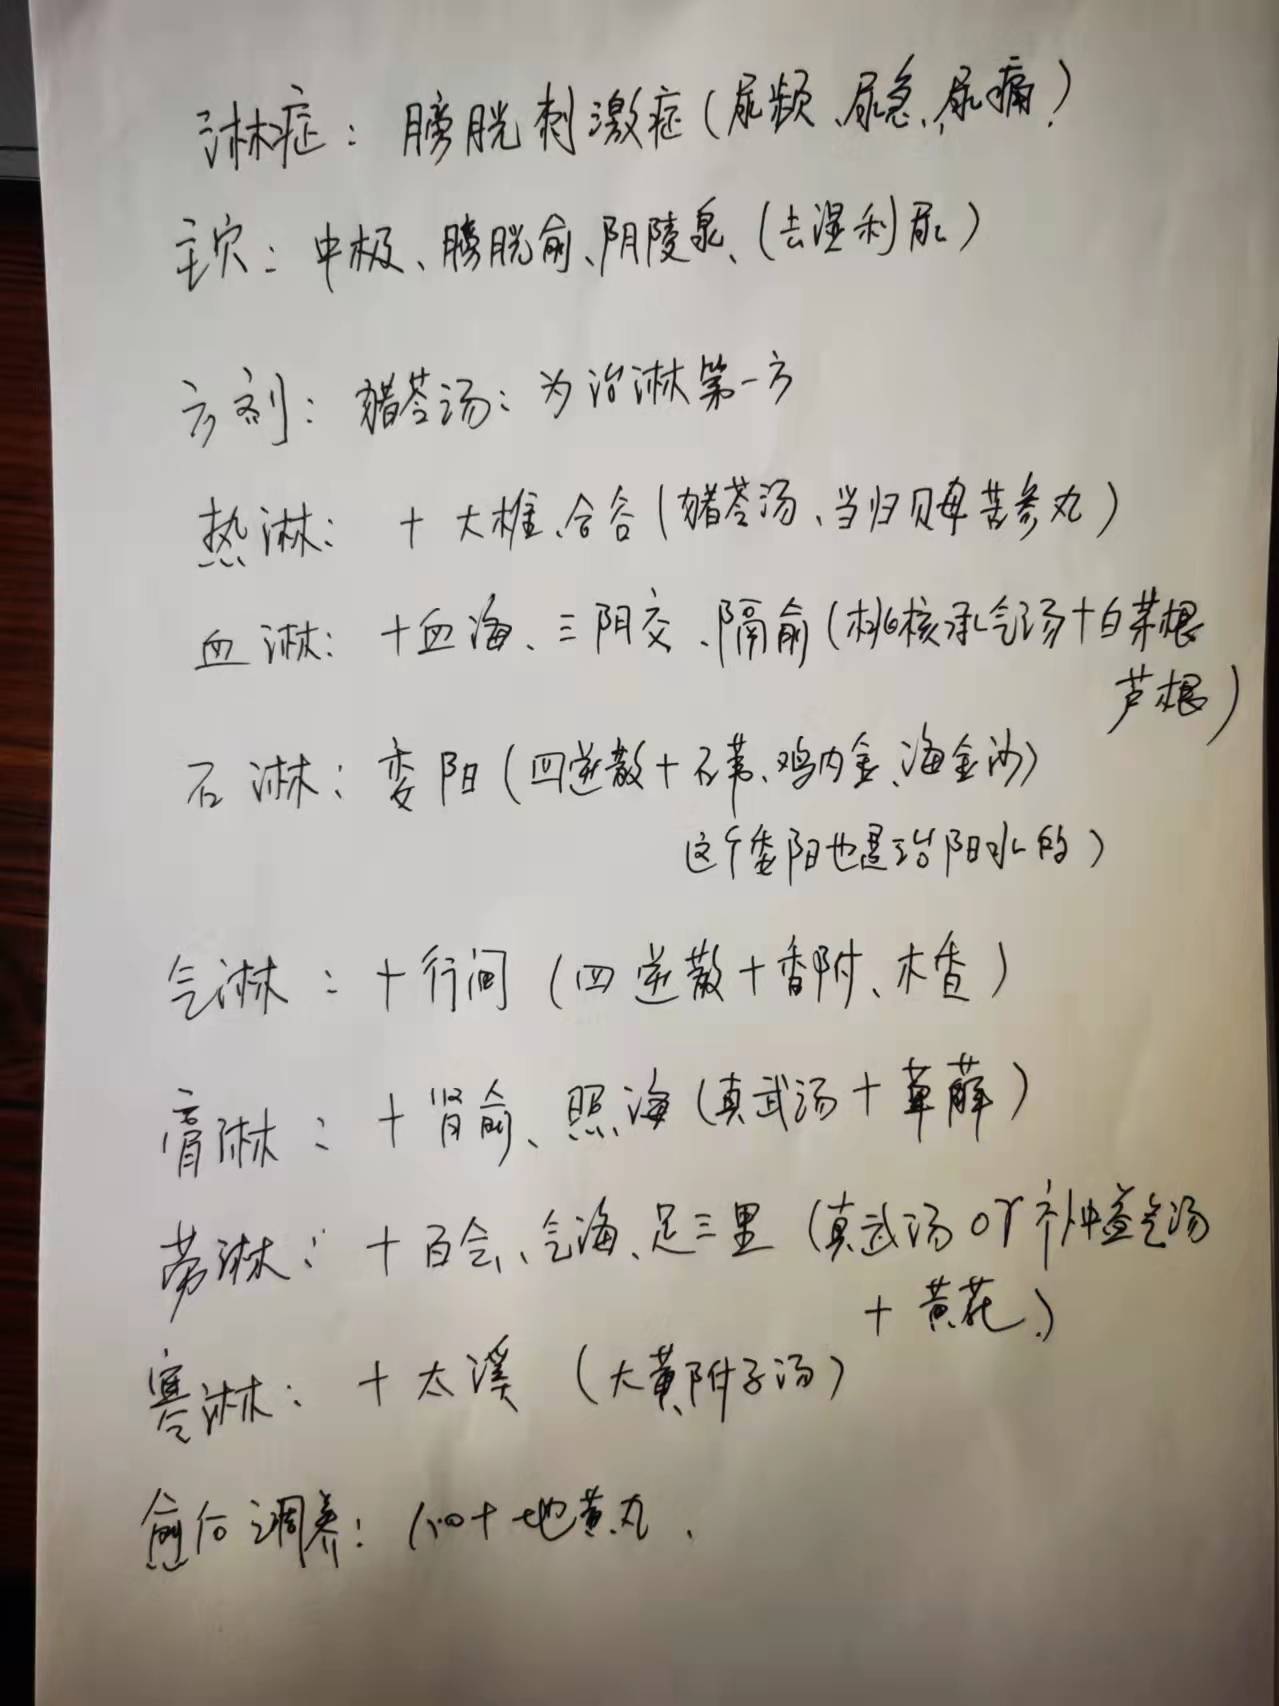 淋症：膀胱刺激症（尿频、尿急、尿痛）
主穴：中极、膀胱俞、阴陵泉、（去湿利尿）
方剂：猪苓汤：为治淋第一方
热淋：+大椎、合谷（猪苓汤、当归贝母苦参丸）
血淋：+血海、三阴交、隔俞（桃核承气汤+白茅根
芦根）
石淋：委阳（四逆散+石苇、鸡内金、海金沙）
这个委阳也是治阳水的）
气淋：+行间（四逆散+香附、木香）
膏淋：+肾俞、照海（真武汤+萆薢）
劳淋：+百会、气海、足三里（真武汤or补中益气汤
+黄芪）
寒淋：+太溪（大黄附子汤）
愈后调养：地黄丸、